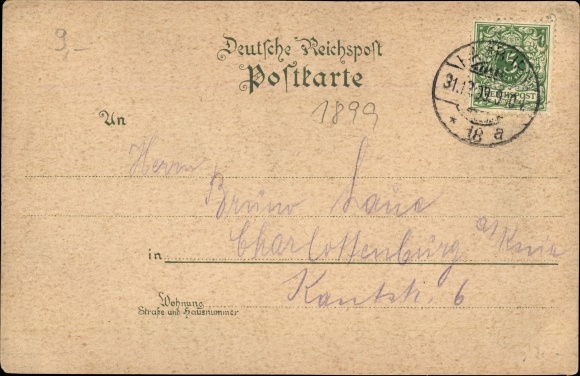 9,-
Deutsche Reichspost
Postkarte
1899
An
Herrn
Bruno
Charlottenburg a/ Knie
in
Kantstr. 6
Wohnung
Straße und Hausnummer
REICHSPOST
31.12.99
* 18 a